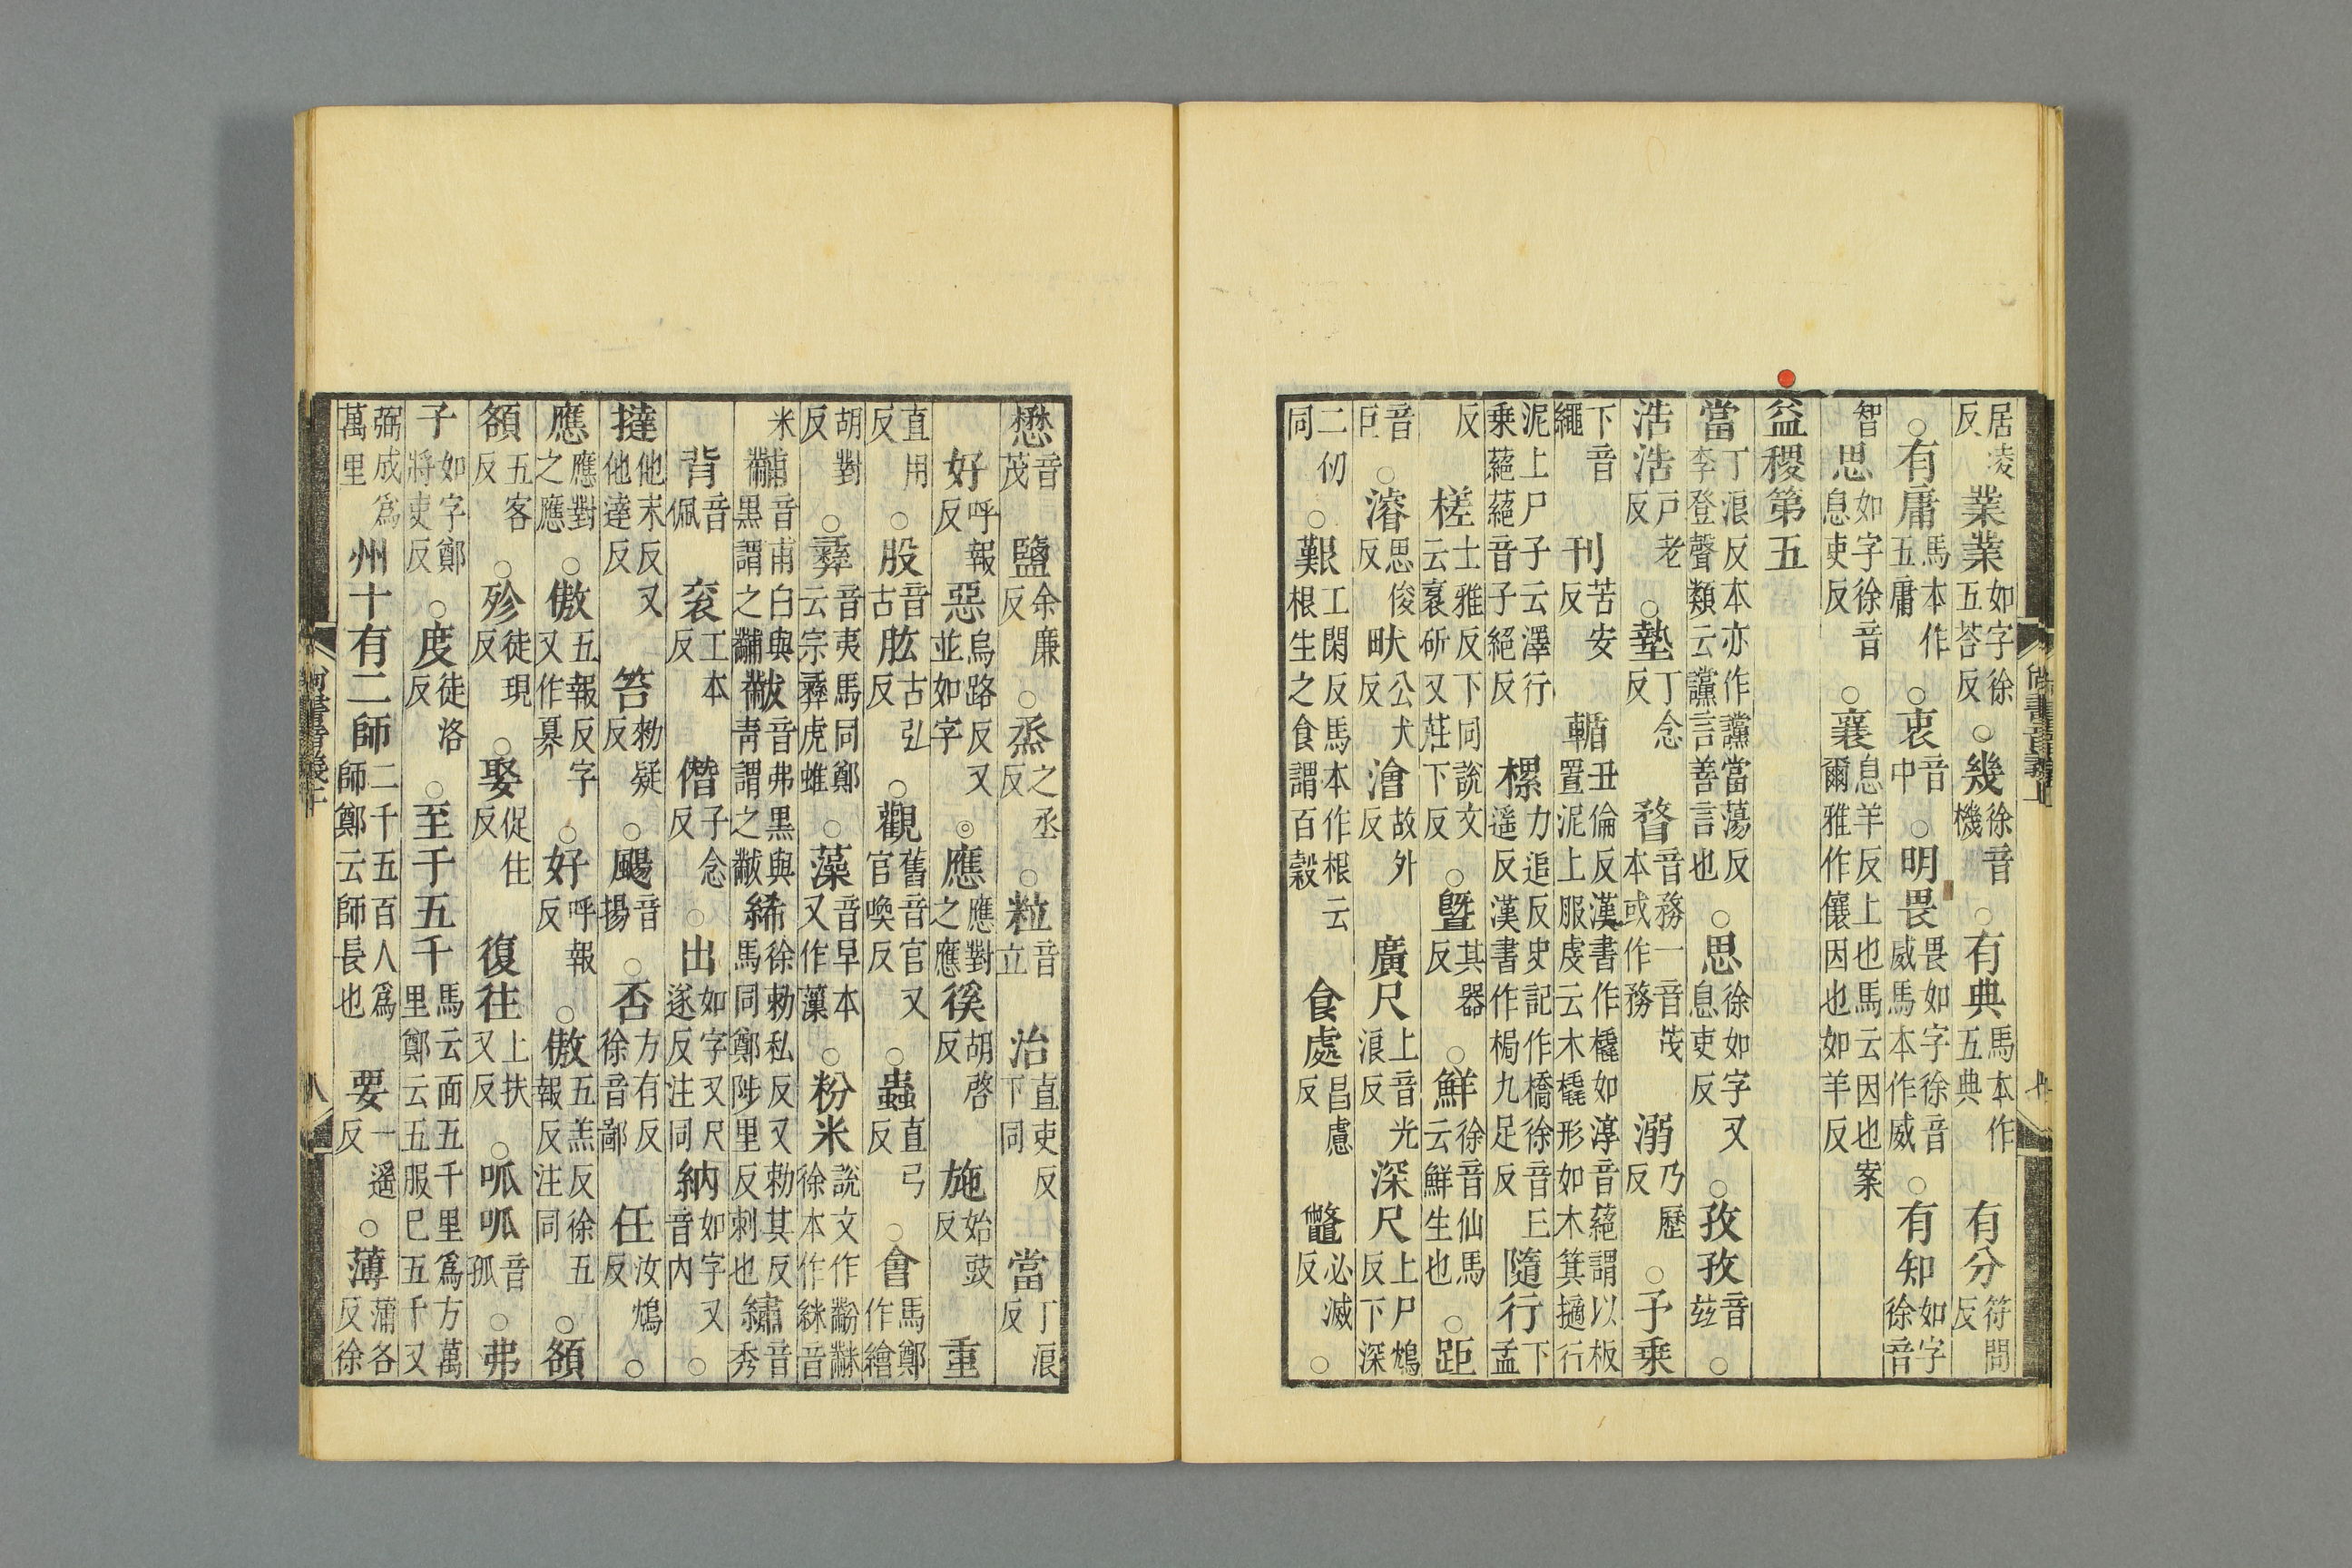 居凌反業業如字徐五荅反○幾徐音機○有典馬本作五典有分符問反
○有庸馬本作五庸○衷音中○明畏畏如字徐音威馬本作威○有知如字徐音
智思如字徐音息吏反○襄息羊反上也馬云因也案爾雅作儴因也如羊反
益稷第五
當丁浪反本亦作讜當蕩反李登聲類云讜言善言也○思徐如字又息吏反○孜孜音玆○
浩浩戸老反○墊丁念反瞀音務一音茂本或作務溺乃歷反○予乗
下音繩刊苦安反輴丑倫反漢書作橇如淳音蕝謂以板置泥上服虔云木橇形如木箕擿行
泥上尸子云澤行乗蕝蕝音子絕反樏力追反史記作橋徐音丘遥反漢書作梮九足反隨行下孟
反槎士雅反下同說文云衺斫又莊下反○暨其器反○鮮徐音仙馬云鮮生也○距
音巨○濬思俊反畎公犬反澮故外反廣尺上音光浪反深尺上尸鴆反下深
二仞同○艱工閑反馬本作根云根生之食謂百穀食處昌慮反鼈必滅反○
懋音茂鹽余廉反○烝之丞反○粒音立治直吏反下同當丁浪反
好呼報反惡烏路反又並如字◎應應對之應徯胡啓反施始豉反重
直用反○股音古肱古弘反○觀舊音官又官喚反○蟲直弓反○會馬鄭作繪
胡對反○彝音夷馬同鄭云宗彝虎蜼○藻音早本又作薻○粉米說文作黺𪓋徐本作䋛音
米黼音甫白與黑謂之黼黻音弗黒與青謂之黻絺徐勑私反又勑其反馬同鄭陟里反刺也繡音秀
背音佩衮工本反僭子念反○出如字又尺遂反注同納如字又音內○
撻他末反又他達反笞勑疑反○颺音揚○否方有反徐音鄙任汝鴆反○
應應對之應○傲五報反字又作奡○好呼報反○傲五羔反徐五報反注同○頟
頟五客反○殄徒現反○娶促住反復往上扶又反○呱呱音孤○弗
子如字鄭將吏反○度徒洛反○至于五千馬云面五千里爲方萬里鄭云五服已五千又
弼成爲萬里州十有二師二千五百人爲師鄭云師長也要一遥反○薄蒲各反徐